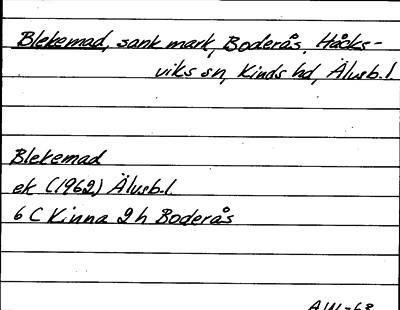 Blekemad, sank mark, Boderås, Håcks-
viks sn, Kinds hd, Älvsb.l
Blekemad
ek (1962) Älvsb.l.
6 C Kinna 2 h Boderås